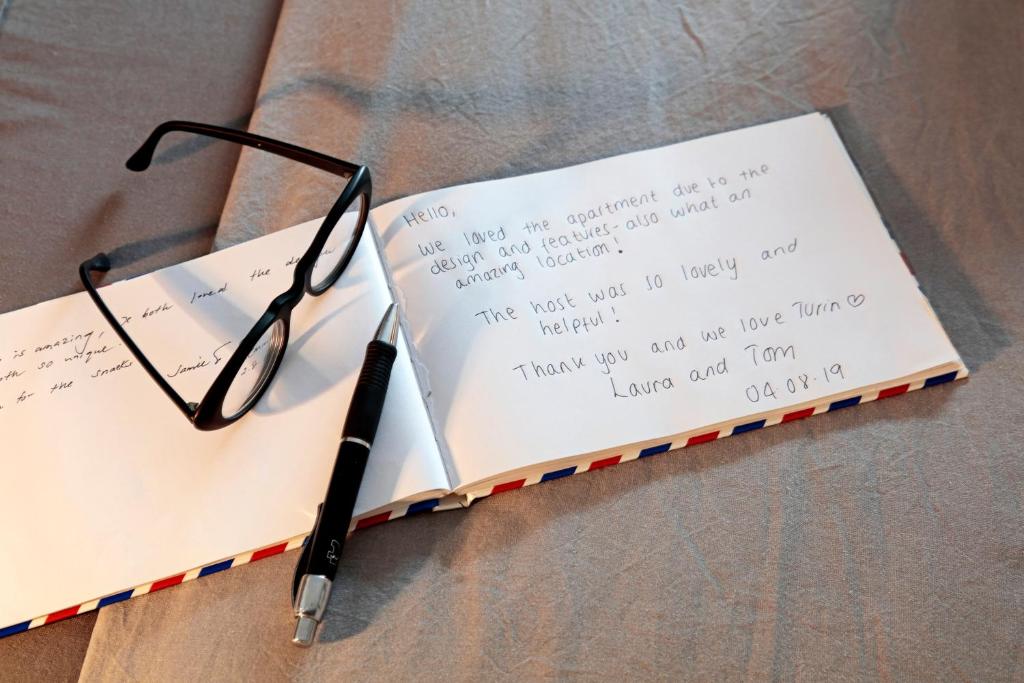 both loved the
is amazing!
both so unique.
for the snacks
Jamie &
Hello,
We loved the apartment due to the
design and features - also what an
amazing location!
The host was so lovely and
helpful!
Thank you and we love Turin ♡
Laura and Tom
04.08.19